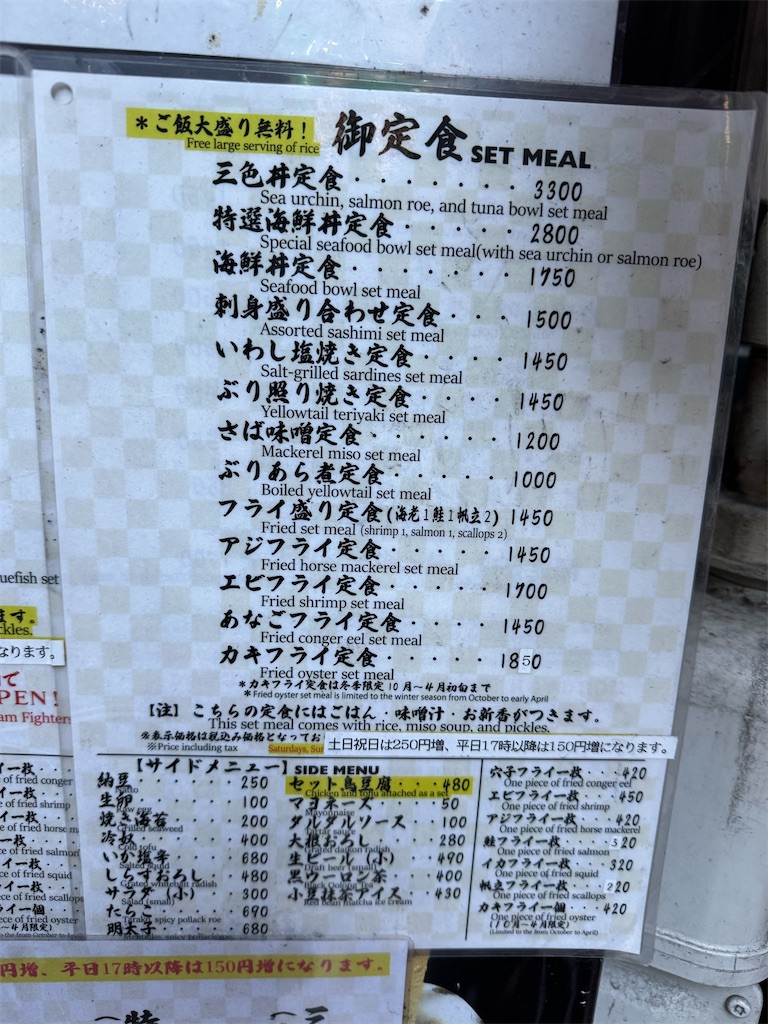 *ご飯大盛り無料！
Free large serving of rice
御定食 SET MEAL
三色丼定食・・・・・・・3300
Sea urchin, salmon roe, and tuna bowl set meal
特選海鮮丼定食・・・・・2800
Special seafood bowl set meal(with sea urchin or salmon roe)
海鮮丼定食・・・・・・・1750
Seafood bowl set meal
刺身盛り合わせ定食・・・1500
Assorted sashimi set meal
いわし塩焼き定食・・・・1450
Salt-grilled sardines set meal
ぶり照り焼き定食・・・・1450
Yellowtail teriyaki set meal
さば味噌定食・・・・・・1200
Mackerel miso set meal
ぶりあら煮定食・・・・・1000
Boiled yellowtail set meal
フライ盛り定食(海老1鮭1帆立2) 1450
Fried set meal (shrimp 1, salmon 1, scallops 2)
アジフライ定食・・・・・1450
Fried horse mackerel set meal
エビフライ定食・・・・・1700
Fried shrimp set meal
あなごフライ定食・・・・1450
Fried conger eel set meal
カキフライ定食・・・・・1850
Fried oyster set meal
*カキフライ定食は冬季限定10月～4月初旬まで
* Fried oyster set meal is limited to the winter season from October to early April
【注】こちらの定食にはごはん・味噌汁・お新香がつきます。
This set meal comes with rice, miso soup, and pickles.
※表示価格は税込み価格となってお
※Price including tax
Saturdays, Sun
土日祝日は250円増、平日17時以降は150円増になります。
【サイドメニュー】SIDE MENU
納豆・・・・・・250
Natto
生卵・・・・・・100
Raw egg
焼き海苔・・・・200
Grilled seaweed
冷奴・・・・・・400
Cold tofu
いか塩辛・・・・680
Salted squid
しらすおろし・・480
Grated whitebait radish
サラダ（小）・・300
Salad (small)
たらこ・・・・・690
Tarako, spicy pollack roe
明太子・・・・・680
セット鳥豆腐・・・480
Chicken and tofu attached as a set
マヨネーズ・・・・50
Mayonnaise
タルタルソース・・100
Tartar sauce
大根おろし・・・・280
Grated daikon radish
生ビール（小）・・490
Draft beer (small)
黒ウーロン茶・・・400
Black Oolong Tea
小豆抹茶アイス・・430
Red bean matcha ice cream
穴子フライ一枚・・420
One piece of fried conger eel
エビフライ一枚・・450
One piece of fried shrimp
アジフライ一枚・・420
One piece of fried horse mackerel
鮭フライ一枚・・・320
One piece of fried salmon
イカフライ一枚・・320
One piece of fried squid
帆立フライ一枚・・220
One piece of fried scallops
カキフライ一個・・420
One piece of fried oyster
(10月～4月限定)
(Limited to the from October to April)
uefish set
ます。
ckles.
なります。
て
PEN!
am Fighters
イ一枚・・
ce of fried conger
イ一枚・・
ece of fried shrimp
イ一枚・・
e of fried horse m
イ一枚・・
ce of fried salmon
イ一枚・・
iece of fried squid
ライ一枚・・
ece of fried scallops
ライ一個・・
iece of fried oyster
～4月限定)
d to the from October to April)
円増、平日17時以降は150円増になります。
特
三